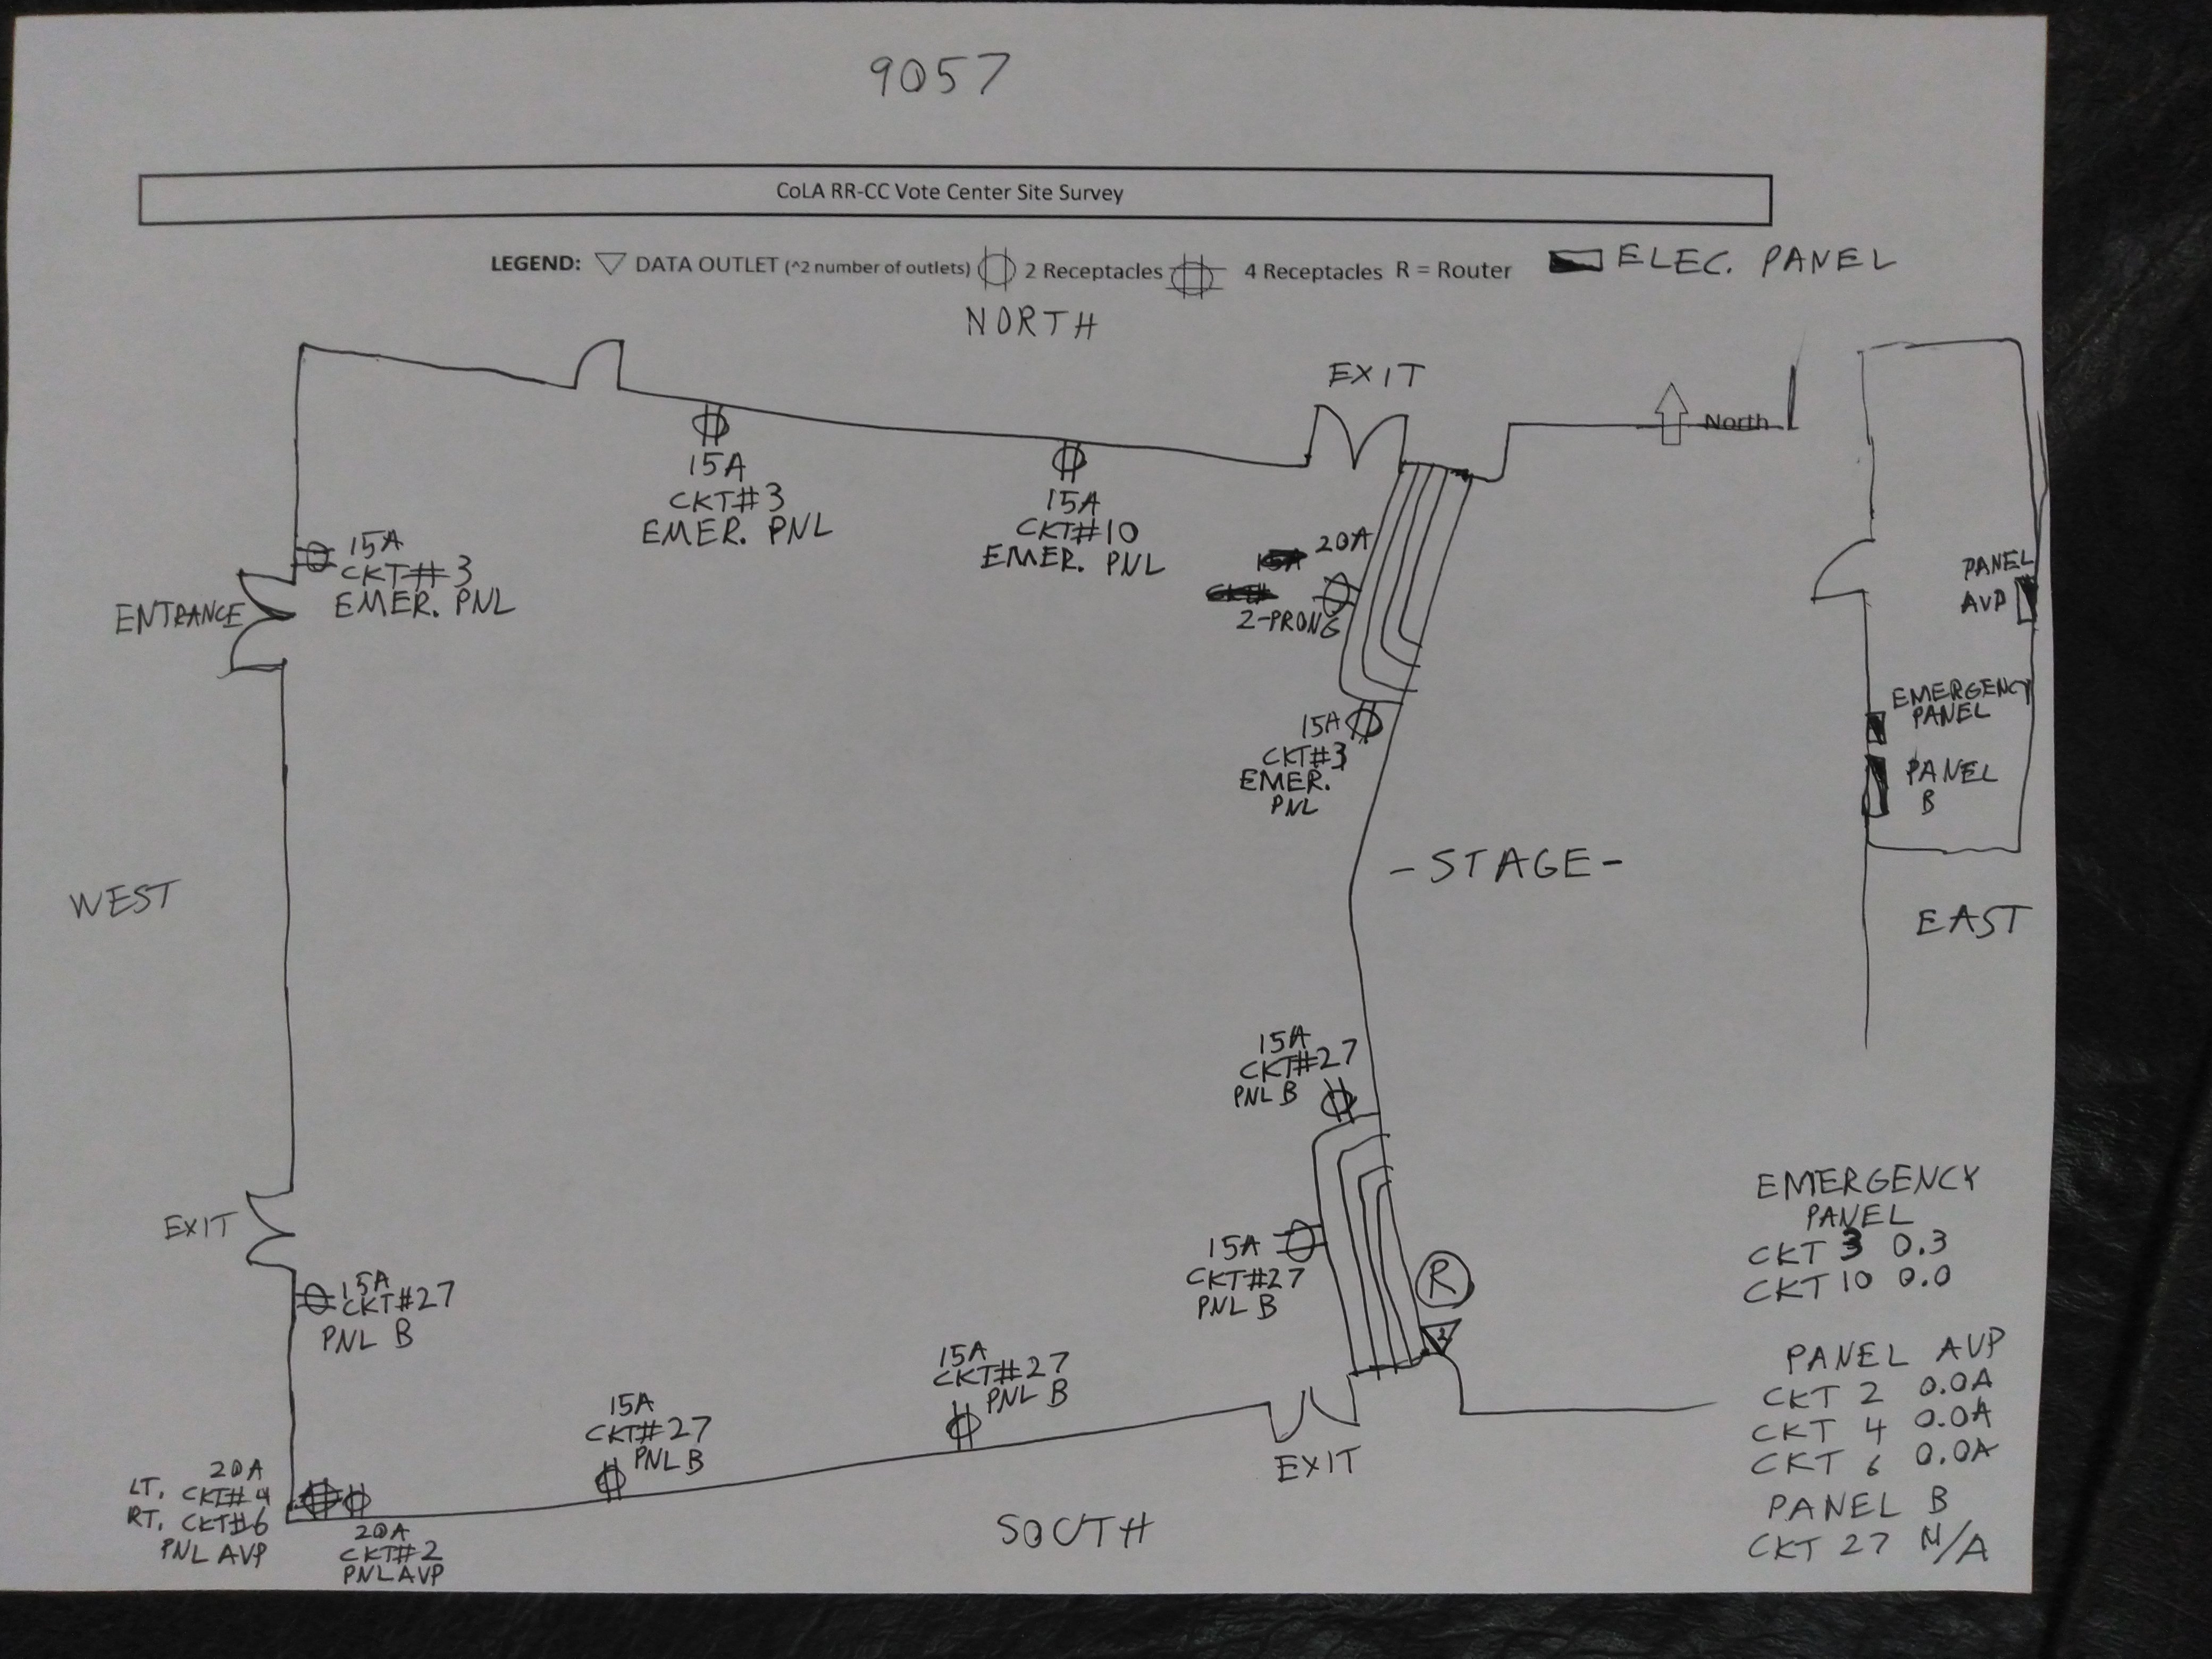 9057
CoLA RR-CC Vote Center Site Survey
LEGEND: DATA OUTLET (^2 number of outlets) 2 Receptacles 4 Receptacles R = Router ELEC. PANEL
NORTH
EXIT
North
15A
CKT#3
EMER. PNL
15A
CKT#10
EMER. PNL
15A
CKT#3
EMER. PNL
ENTRANCE
20A
15A
CKT#
2-PRONG
PANEL
AVP
EMERGENCY
PANEL
PANEL
B
15A
CKT#3
EMER.
PNL
-STAGE-
WEST
EAST
15A
CKT#27
PNL B
EXIT
15A
CKT#27
PNL B
15A
CKT#27
PNL B
R
2
15A
CKT#27
PNL B
15A
CKT#27
PNL B
EXIT
20A
LT. CKT#4
RT. CKT#6
PNL AVP
20A
CKT#2
PNL AVP
SOUTH
EMERGENCY
PANEL
CKT 3 0.3
CKT 10 0.0
PANEL AVP
CKT 2 0.0A
CKT 4 0.0A
CKT 6 0.0A
PANEL B
CKT 27 N/A